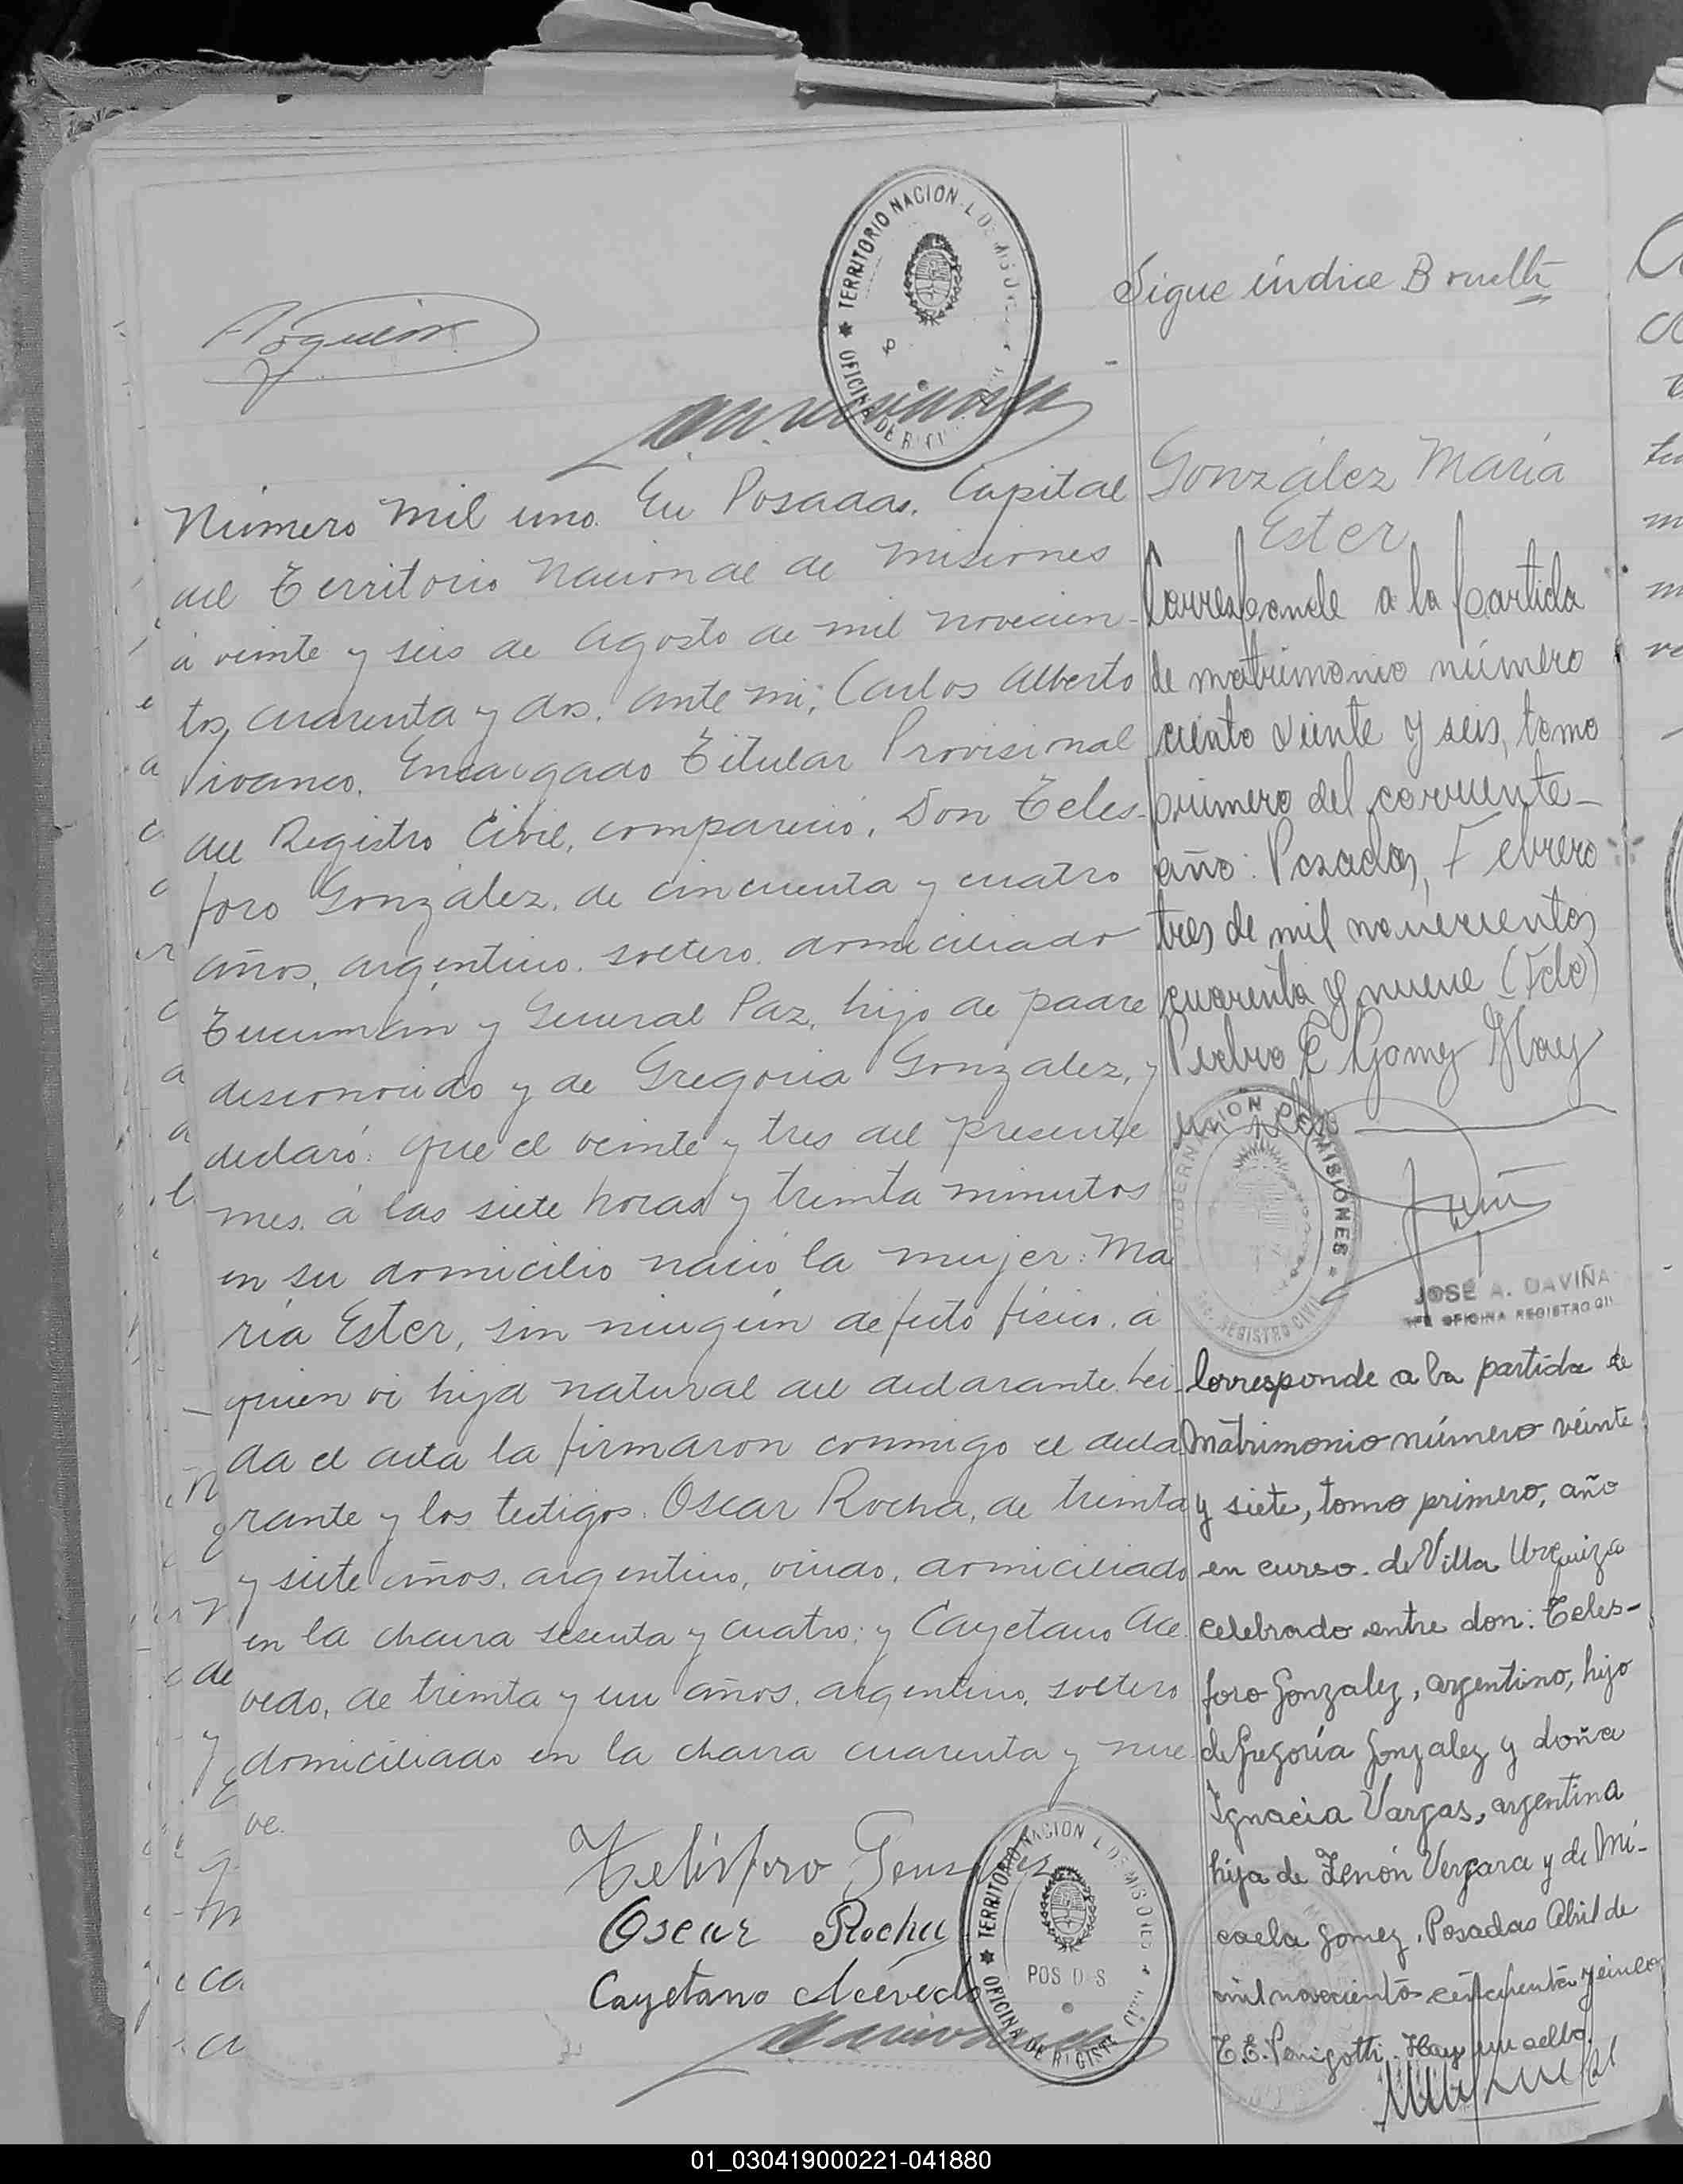 Sigue índice B vuelta
TERRITORIO NACION L DE MISIONES
OFICINA DE
Número mil uno. En Posadas, Capital
del Territorio Nacional de Misiones
á veinte y seis de Agosto de mil novecien-
tos cuarenta y dos, ante mi; Carlos Alberto
Vivanco, Encargado Titular Provisional
del Registro Civil, compareció, Don Teles-
foro González, de cincuenta y cuatro
años, argentino, soltero, domiciliado
Tucumán y General Paz, hijo de padre
desconocido y de Gregoria Gonzalez, y
declaró: que el veinte y tres del presente
mes, á las siete horas y treinta minutos
en su domicilio nació la mujer: Ma
ría Ester, sin ningún defecto físico, á
quien vi hija natural del declarante. Lei-
da el acta la firmaron conmigo el decla
rante y los testigos. Oscar Rocha, de treinta
y siete años, argentino, viudo, domiciliado
en la chacra sesenta y cuatro; y Cayetano Ace
vedo, de treinta y un años, argentino, soltero
domiciliado en la chacra cuarenta y nue
ve.
Telésforo Gonzalez
Oscar Rocha
Cayetano Acevedo
TERRITORIO NACION L DE MISIONES
POS D S
OFICINA DE REGISTRO
González María
Ester
Corresponde a la partida
de matrimonio número
ciento veinte y seis, tomo
primero del corriente-
año: Posadas, Febrero
tres de mil novecientos
cuarenta y nueve (Fdo)
Pedro E Gomez Hay
un sello
GOBERNACION DE MISIONES
REGISTRO CIVIL
JOSÉ A. DAVIÑA
JEFE OFICINA REGISTRO CIVIL
Corresponde a la partida de
Matrimonio número veinte
y siete, tomo primero, año
en curso. de Villa Urquiza
celebrado entre don: Teles-
foro Gonzalez, argentino, hijo
de Gregoría Gonzalez y doña
Ignacia Vargas, argentina
hija de Zenón Vergara y de Mi-
caela Gomez. Posadas Abril de
mil novecientos cincuenta y cinco
T.E. Penigotti. Hay un sello.
01_030419000221-041880